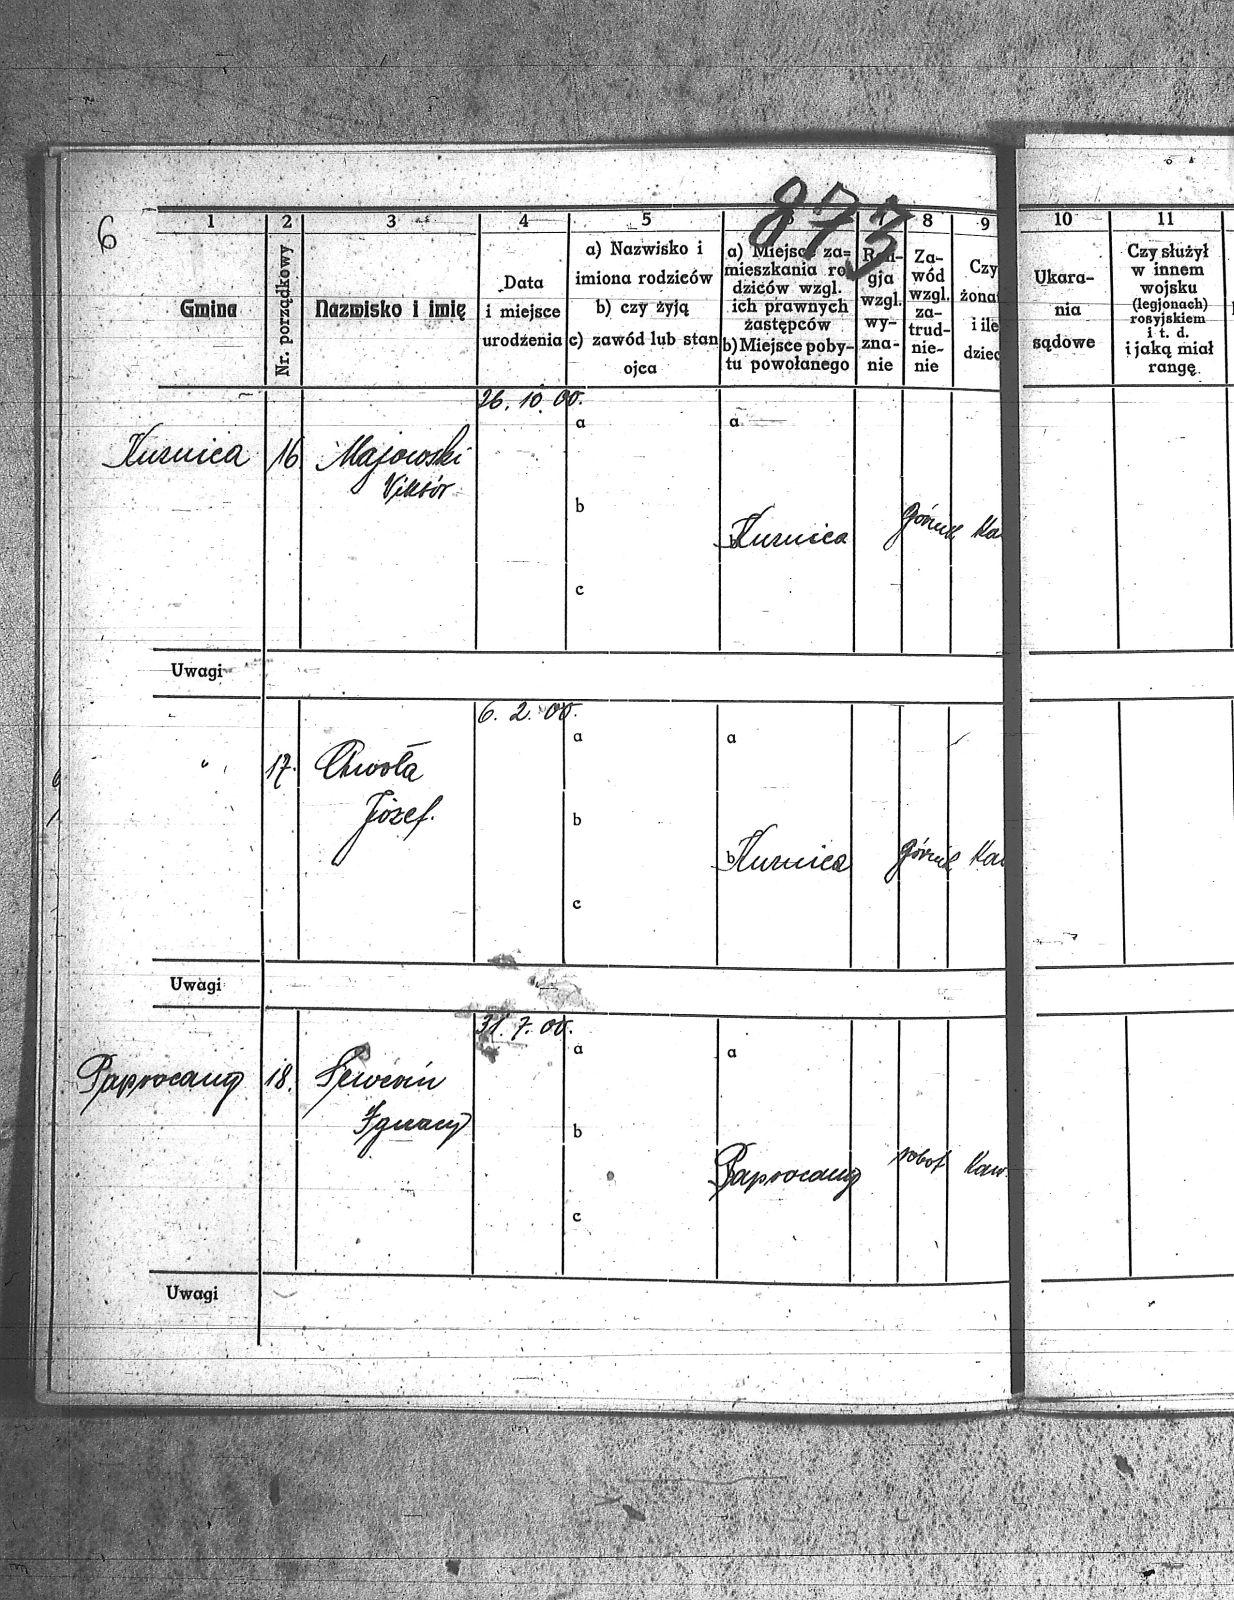 6
873
1
2
3
4
5
8
9
10
11
Gmina
Nr. porządkowy
Nazwisko i imię
Data
i miejsce
urodzenia
a) Nazwisko i
imiona rodziców
b) czy żyją
c) zawód lub stan
ojca
a) Miejsce za=
mieszkania ro-
dziców wzgl.
ich prawnych
zastępców
b) Miejsce poby-
tu powołanego
Reli-
gja
wzgl.
wy-
zna-
nie
Za-
wód
wzgl.
za-
trud-
nie-
nie
Czy
żona
i ile
dziec
Ukara-
nia
sądowe
Czy służył
w innem
wojsku
(legjonach)
rosyjskiem
i t. d.
i jaką miał
rangę
26. 10. 00.
a
a
16
Majowski
Viktor
b
b
górnik
Ka
c
Uwagi
6. 2. 00.
a
a
" 
17.
Chwoła
Józef.
b
b
górnik
Ka
c
Uwagi
31. 7. 00.
a
a
Paprocany
18.
Ignacy
b
Paprocany
robot
Kaw
c
Uwagi